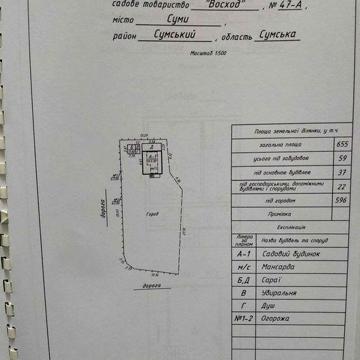 садове товариство "Восход", № 47-А,
місто Суми
район Сумський, область Сумська
Масштаб 1:500
Площа земельної ділянки, у т.ч.
загальна площа 655
усього під забудовою 59
під основною будівлею 37
під господарськими, допоміжними
будівлями і спорудами 22
під городом 596
Примітка
Експлікація
Літера
за
планом Назва будівель та споруд
А-1 Садовий будинок
м/с Мансарда
Б,Д Сараї
В Убиральня
Г Душ
№1-2 Огорожа
Д
Город
дорога
дорога